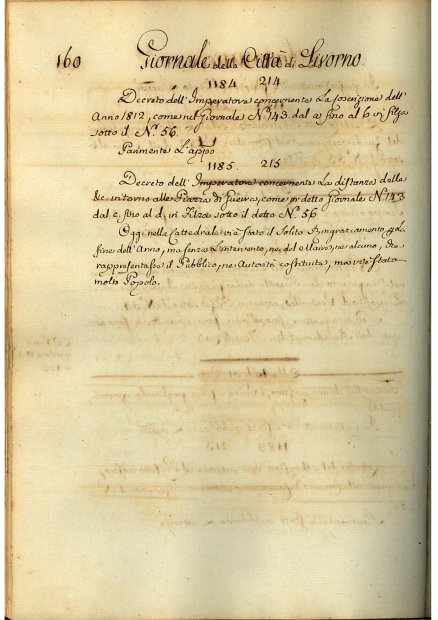 160 Giornale della Città di Livorno
1184 214
Decreto dell' Imperatore concernente La
Anno 1812, come nel Giornale N.° 143. dal a fino al b in filza
sotto il N.° 56.
Parimente L'appo
1185. 215
Decreto dell' Imperatore concernente La distanza delle
intorno alle Piazze di Guerra, come in detto Giornale N.° 143
dal c. fino al d. in Filza sotto il detto N.° 56
Oggi nella Cattedrale vi è stato il Solito Ringraziamento
fine dell' Anno, ma senza L'intervento, ne del Maire, ne alcuno, che
rappresentasse il Pubblico, ne Autorità costituita, ma vi è stato
molto Popolo.